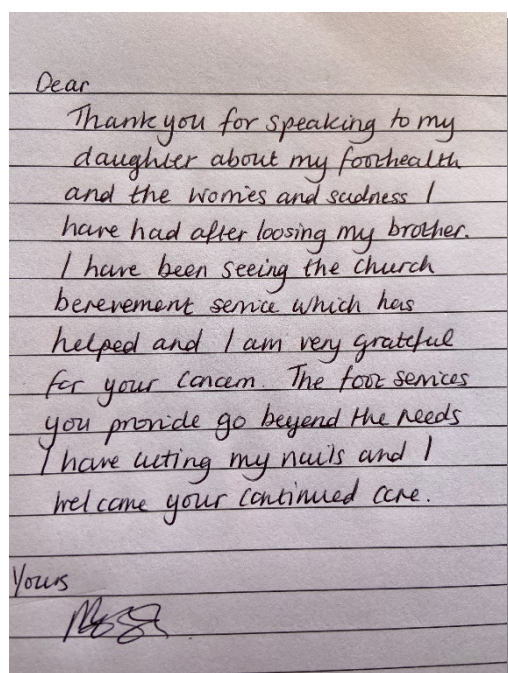 Dear
Thank you for speaking to my
daughter about my foothealth
and the worries and sadness I
have had after loosing my brother.
I have been seeing the church
berevement service which has
helped and I am very grateful
for your concern. The foot services
you provide go beyend the needs
I have cutting my nails and I
welcome your continued care.
Yours